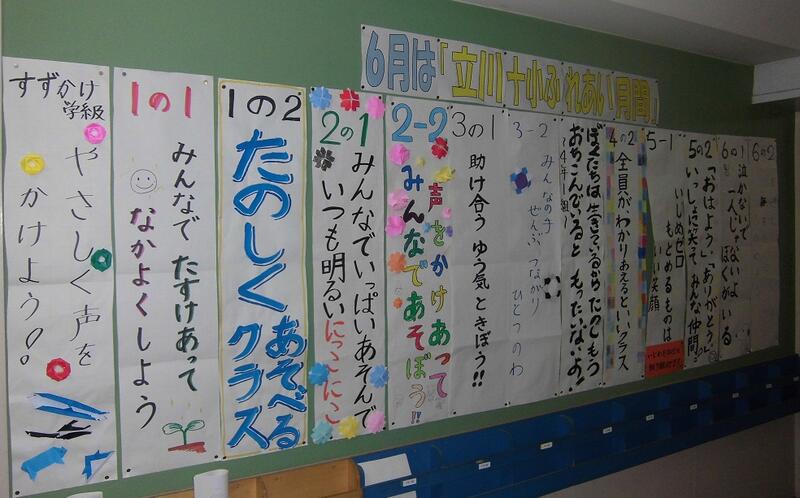 6月は「立川十小ふれあい月間」
すずかけ
学級
やさしく声を
かけよう!
1の1
みんなで たすけあって
なかよくしよう
1の2
たのしく
あそべる
クラス
2の1
みんなでいっぱいあそんで
いつも明るいにっこにこ
2-2
声をかけあって
みんなであそぼう!!
3の1
助け合う ゆう気 ときぼう!!
3-2
みんなの手
ぜんぶ つながり
ひとつのわ
ぼくたちは 生きているから たのしもう
おちこんでいると もったいないよ!
4年1組
4の2
全員がわかりあえるといいクラス
5-1
いじめゼロ
もとめるものは
いい笑顔
5の2
「おはよう」「ありがとう」
いっしょに笑って みんな仲間
6の1
泣かないで
一人じゃないよ
ぼくがいる
6の2